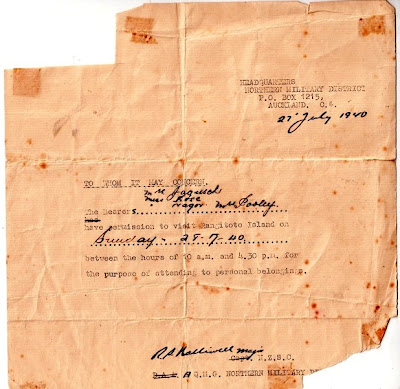 HEADQUARTERS
NORTHERN MILITARY DISTRICT
P.O. BOX 1215,
AUCKLAND. C.1.
27 July 1940
TO WHOM IT MAY CONCERN.
Mr Jagusch
Miss Rose
The Bearers Mr Pooley
has
have permission to visit Rangitoto Island on
Sunday - 28-7-40.
between the hours of 10 a.m. and 4.30 p.m. for
the purpose of attending to personal belongings.
Major
Capt. N.Z.S.C.
Q.M.G. NORTHERN MILITARY DI